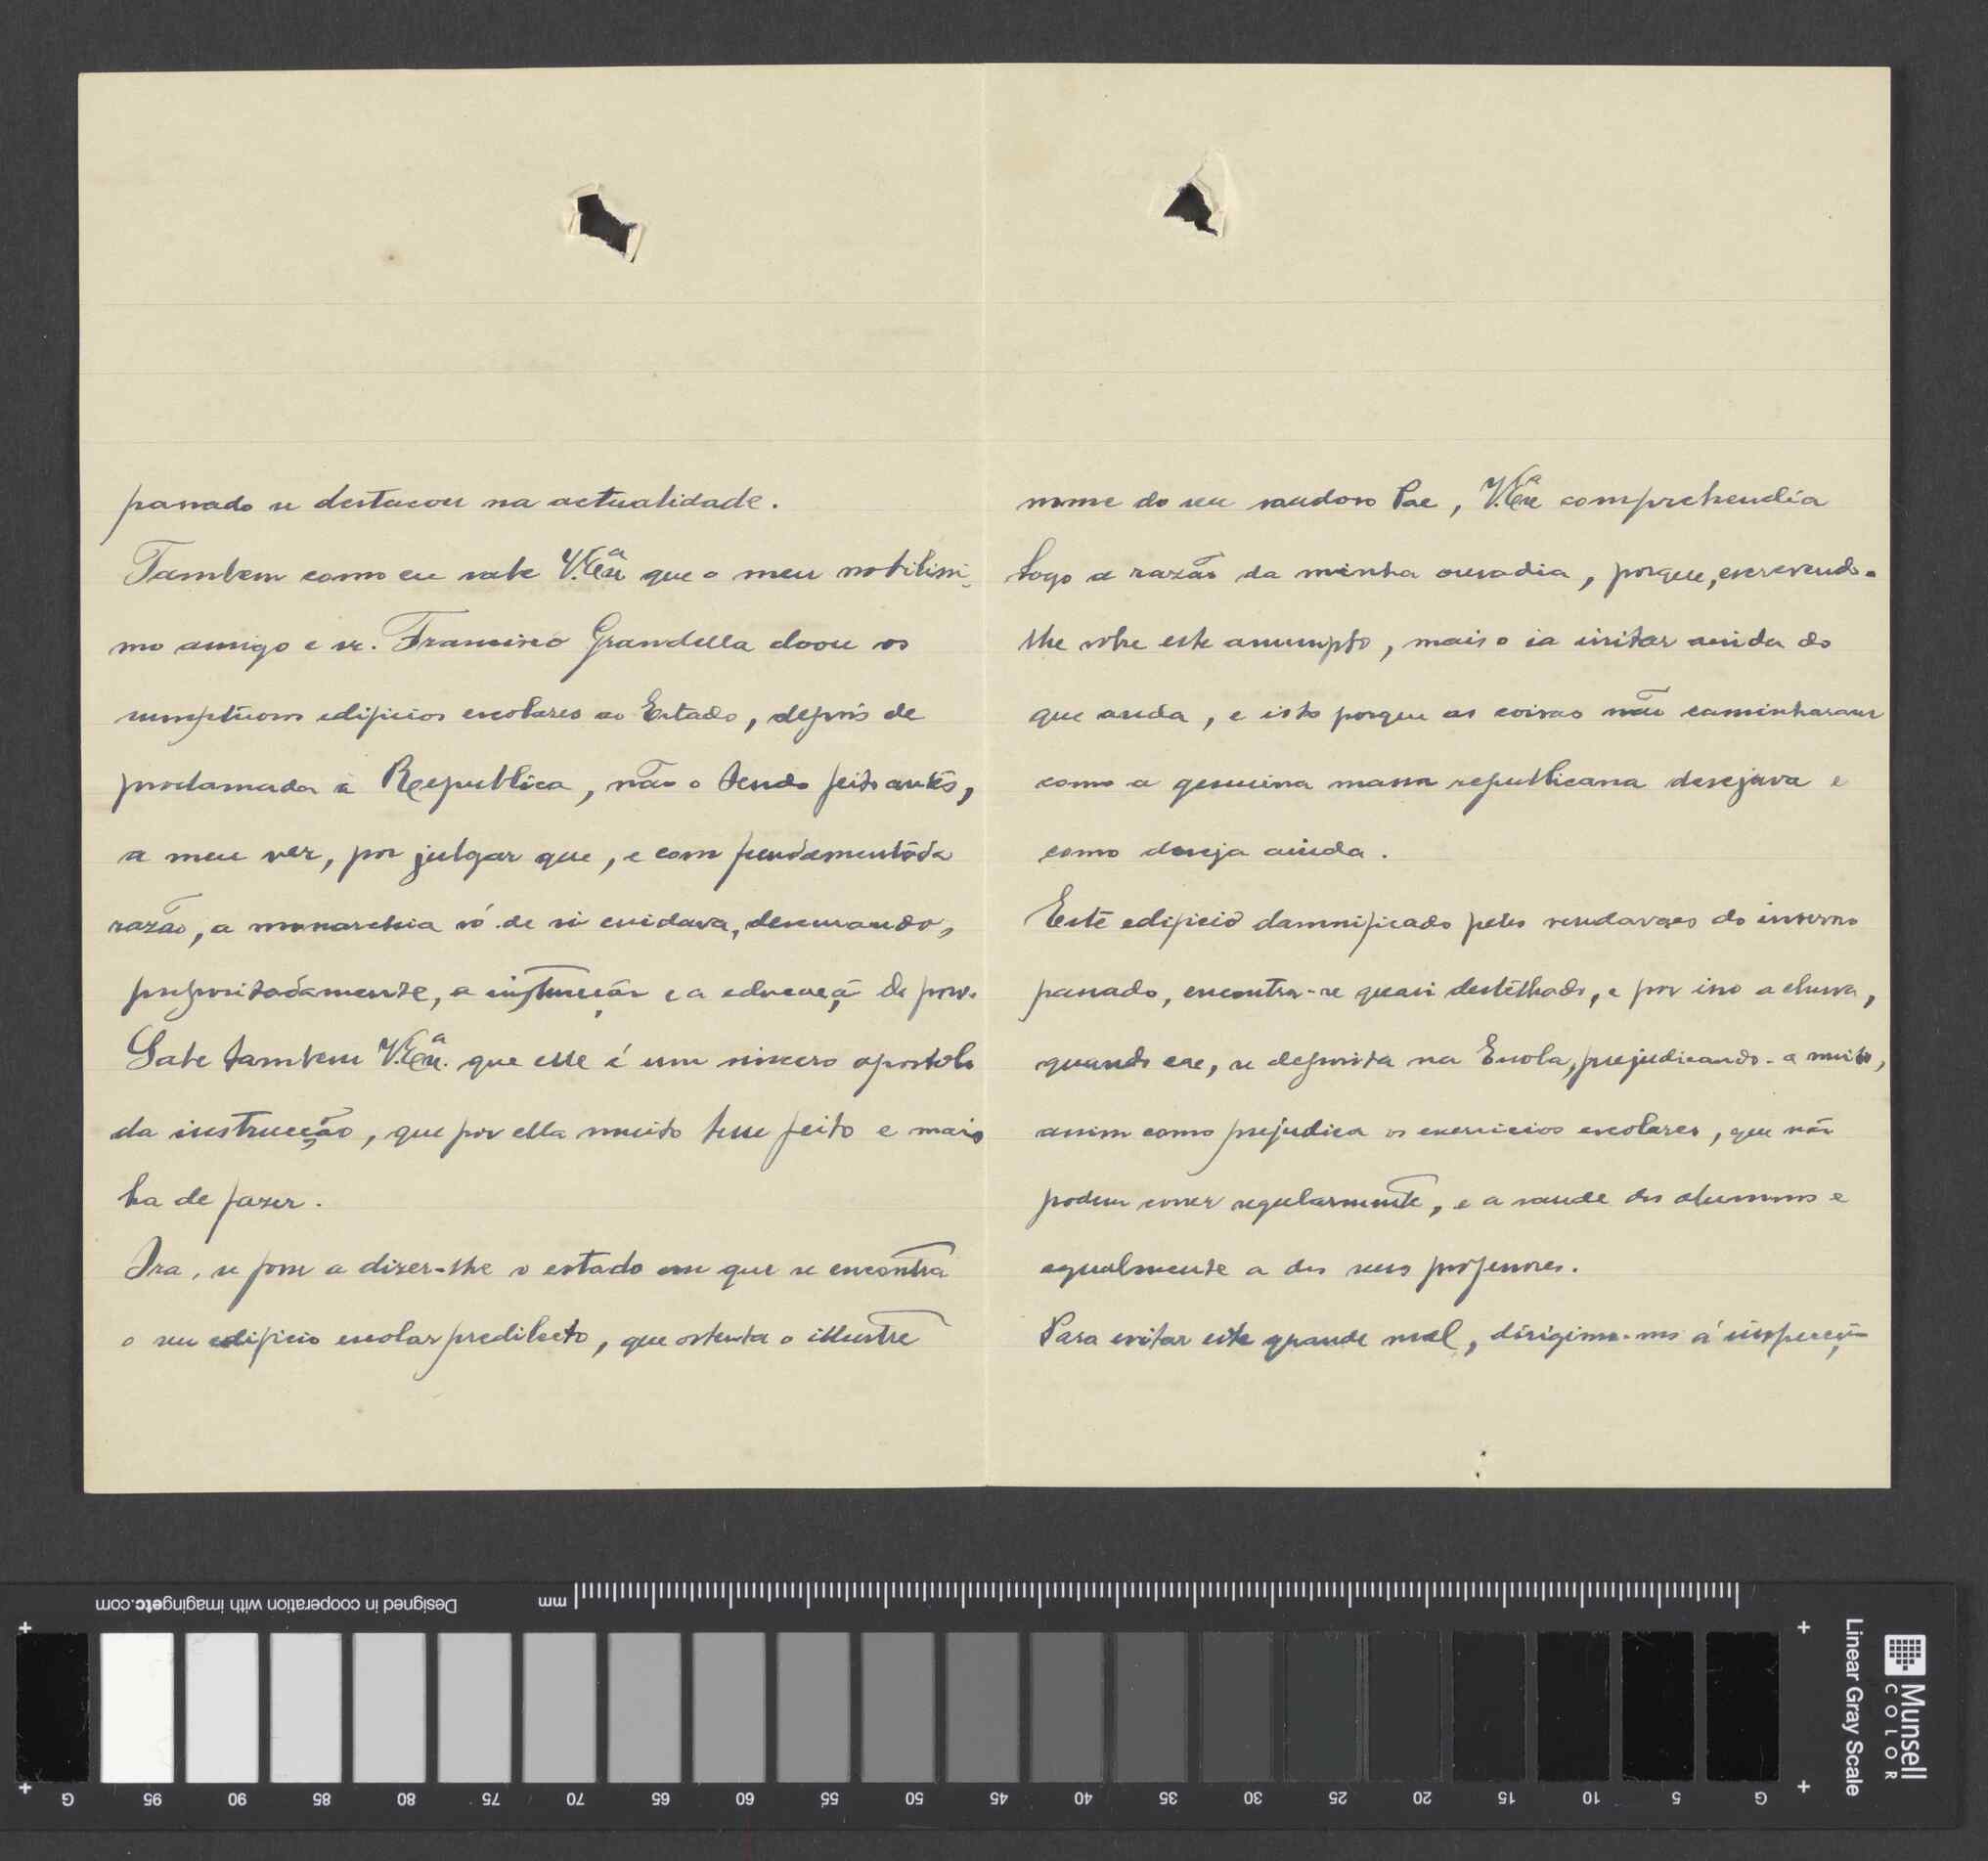 passado se destacou na actualidade.
Tambem como eu sabe V. Exª que o meu nobilissi-
mo amigo e sr. Francisco Grandella doou os
sumptuosos edificios escolares ao Estado, depois de
proclamada a Republica, não o tendo feito antes,
a meu ver, por julgar que, e com fundamentada
razão, a monarchia só de si cuidava, descurando,
propositadamente, a instrucção e a educação do povo.
Sabe tambem V. Exª. que elle é um sincero apostolo
da instrucção, que por ella muito tem feito e mais
ha de fazer.
Ora, se fosse a dizer-lhe o estado em que se encontra
o seu edificio escolar predilecto, que ostenta o illustre
nome do seu saudoso Pae, V. Exª comprehendia
logo a razão da minha ousadia, porque, escrevendo-
lhe sobre este assumpto, mais o ia irritar ainda do
que anda, e isto porque as coisas não caminharam
como a genuina massa republicana desejava e
como deseja ainda.
Este edificio damnificado pelos vendavaes do inverno
passado, encontra-se quasi destelhado, e por isso a chuva,
quando cae, se deposita na Escola, prejudicando-a muito,
assim como prejudica os exercicios escolares, que não
podem correr regularmente, e a saude dos alumnos e
egualmente a dos seus professores.
Para evitar este grande mal, dirigimo-nos á inspecção
Designed in cooperation with imagingetc.com
mm
Munsell
COLOR
Linear Gray Scale
G 95 90 85 80 75 70 65 60 55 50 45 40 35 30 25 20 15 10 5 G